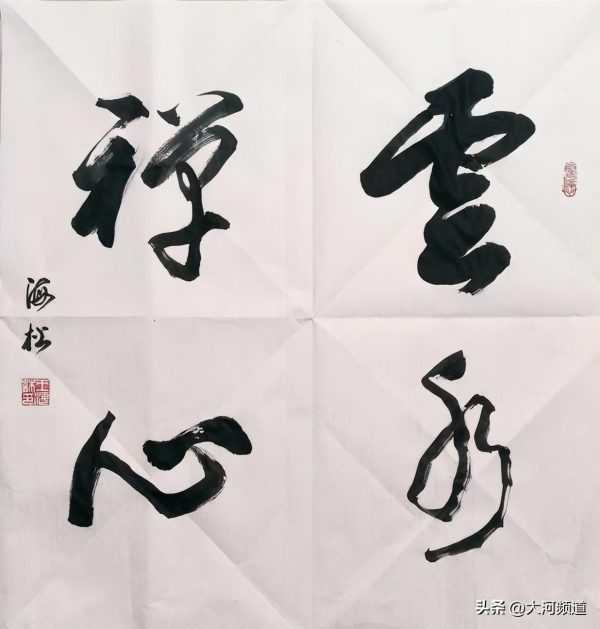 雲水
禅心
海松
头条 @大河频道